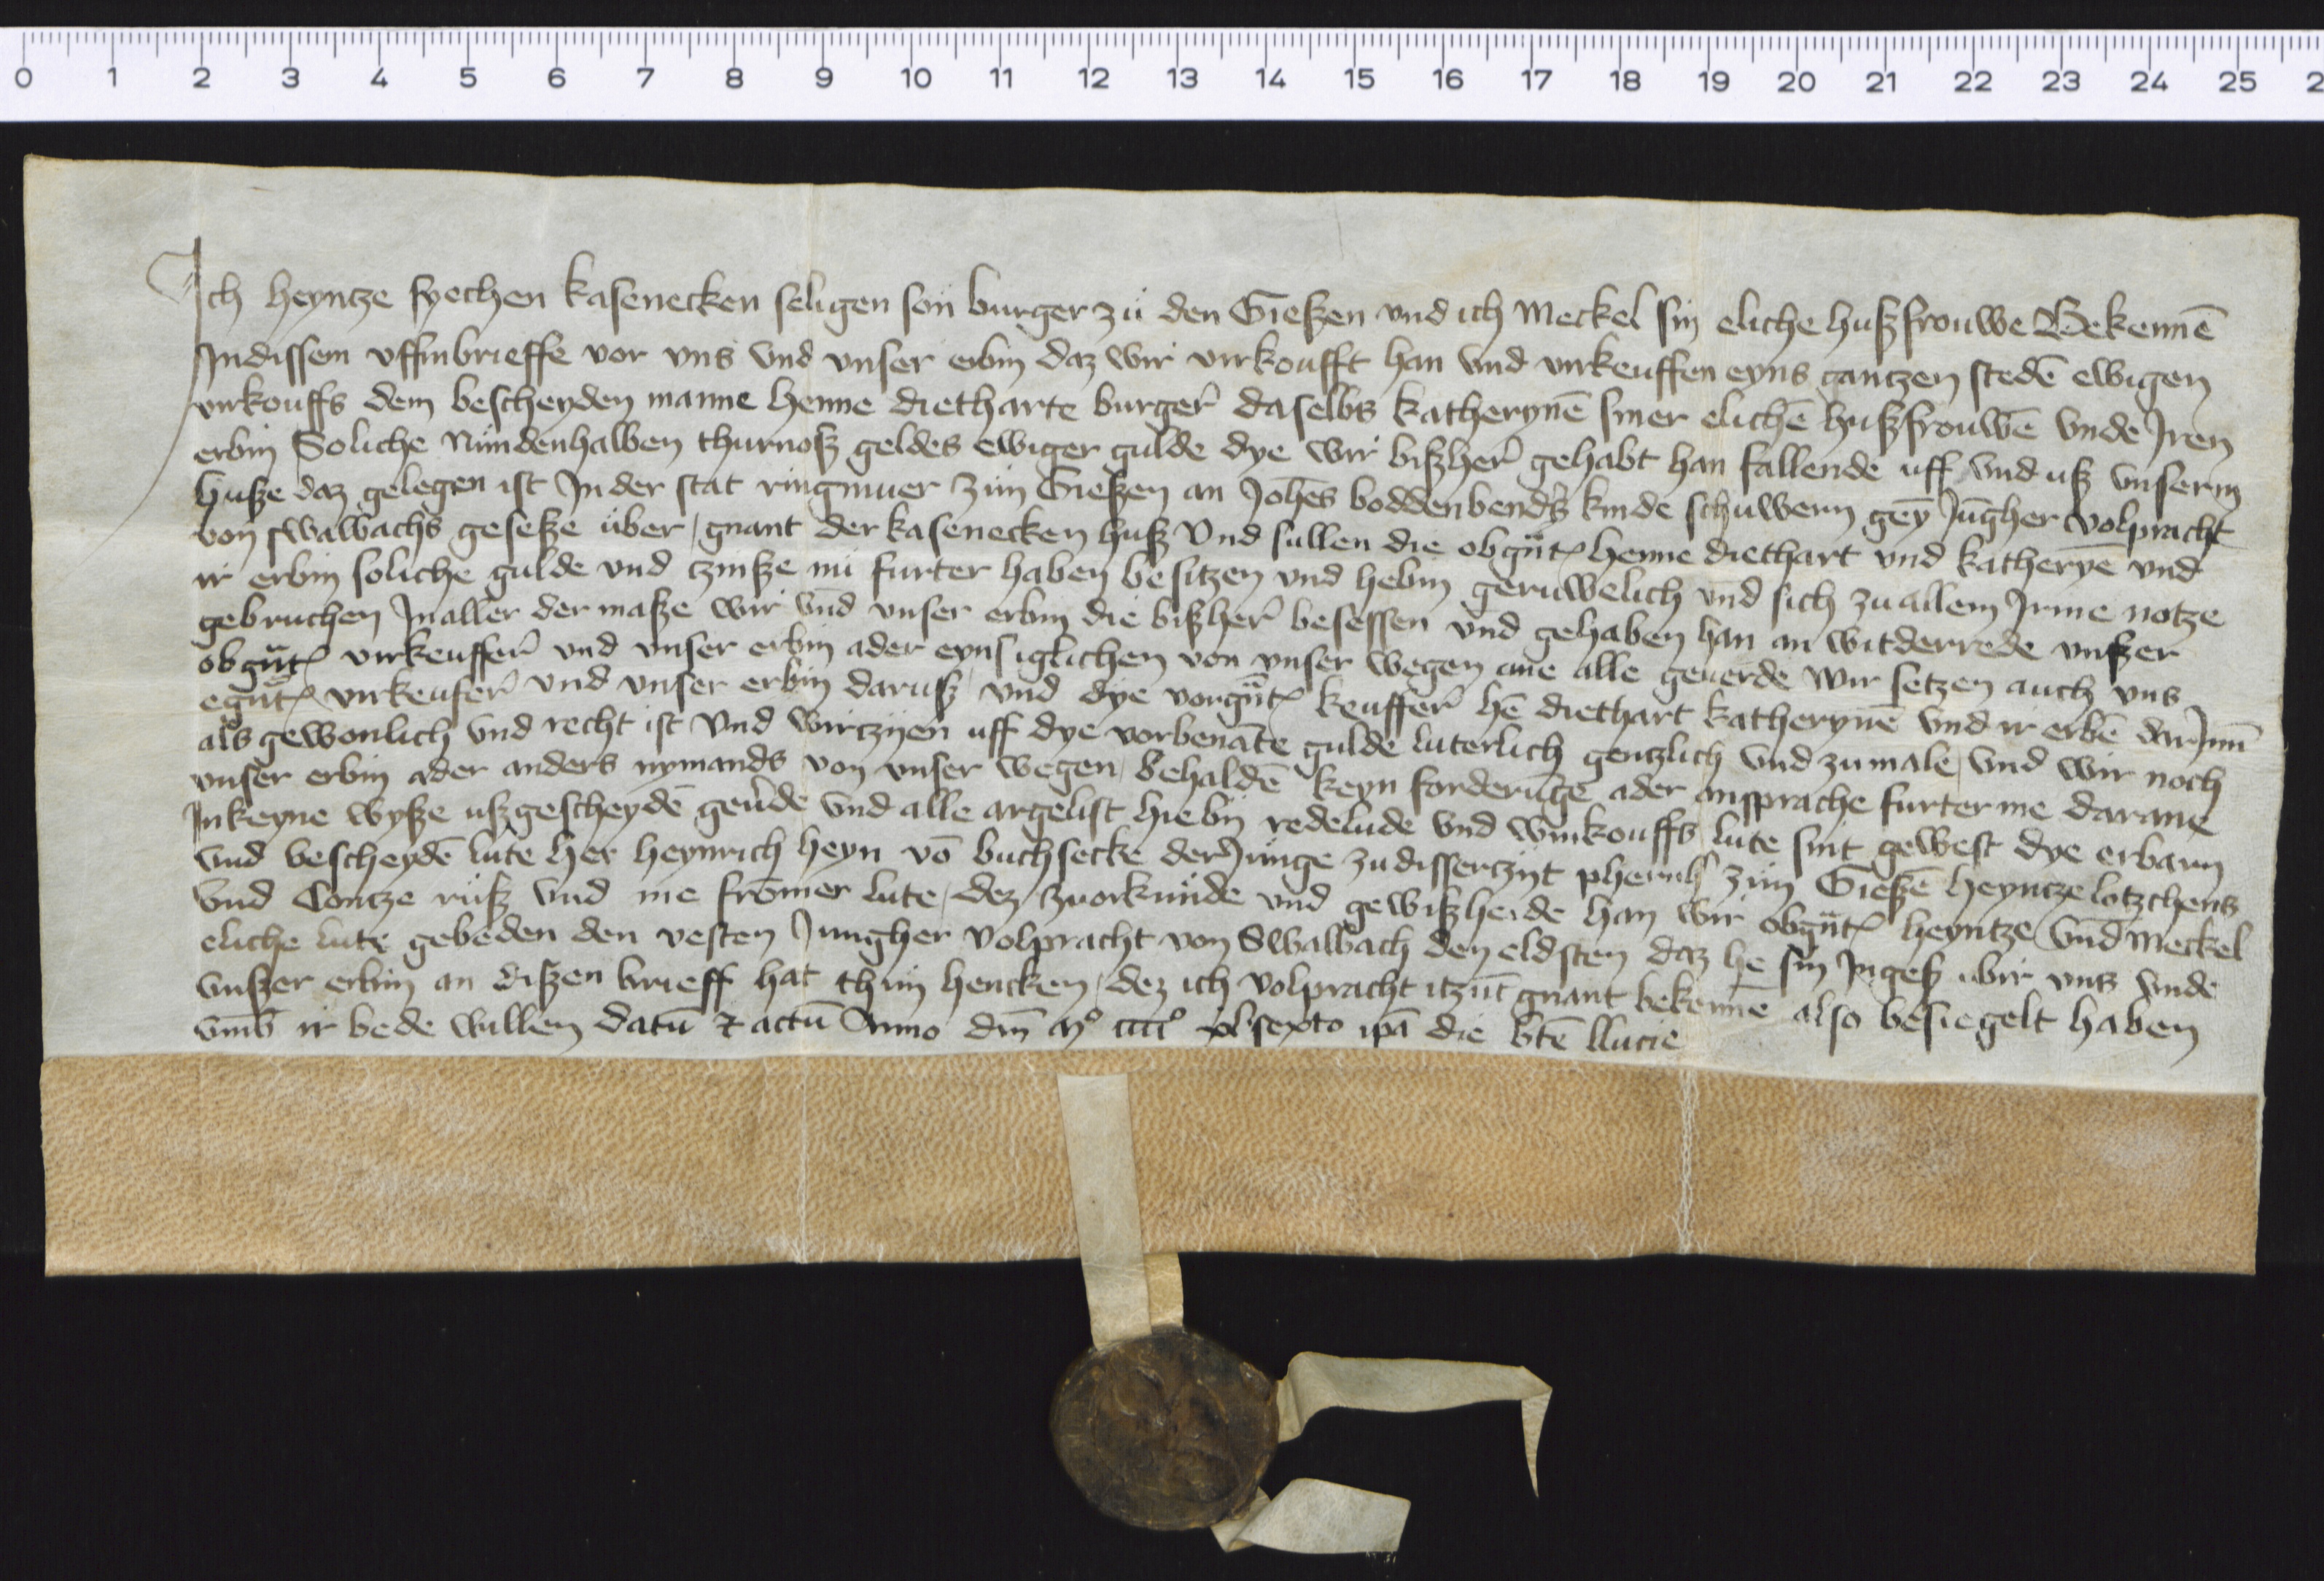 0 1 2 3 4 5 6 7 8 9 10 11 12 13 14 15 16 17 18 19 20 21 22 23 24 25 2
Ich heyntze fyechen kasenecken seligen son burger zu den Gießen vnd ich Meckel sin eliche hußfrouwe Bekennē
Jn dissem uffinbrieffe vor vns vnd vnser erbin daz wir virkoufft han vnd virkeuffen eyns gantzen stedē ewigen
virkouffs dem bescheyden manne henne dietharte burger daselbs katherynē siner elichē hußfrouwē vnde Jren
erbin Soliche Nundenhalben thurnoß geldes ewiger gulde dye wir bißher gehabt han fallende uff vnd uß vnserm
huße daz gelegen ist Jn der stat ringmuer zum Gießen an Johēs boddenbenders kinde schuwern gey Jūgher volpracht
von swalbachs geseße uber / gnant der kasenecken huß Vnd sullen die obgnt henne diethart vnd katheryē vnd
ir erbin soliche gulde vnd czinße nu furter haben besitzen vnd hebin geruwelich vnd sich zu allem Jrme notze
gebruchen Jn aller der maße wir vnd vnser erbin die bißher besessen vnd gehaben han an witderrede vnßer
obgnt virkeuffer vnd vnser erbin ader eynsiglichen von vnser wegen ane alle geuerde wir setzen auch vns
egnt virkeufer vnd vnser erbin daruß / vnd dye vorgnt keuffer hē diethart katherynē vnd ir erbē dar Jnn
als gewonlich vnd recht ist Vnd wirczijen uff dye vorbenāte gulde luterlich gentzlich vnd zumale / vnd wir noch
vnser erbin ader anders nymands von vnser wegen / behaldē keyn forderūge ader ansprache furter me darane
Jn keyne wyße ußgescheydē geūde vnd alle argelist hie bij redelude vnd winkouffs lute sint gewest dye erbarn
vnd bescheydē lute her heynrich heyn vō buchsecke der Junge zu disser czijt pherner zum Gießē heyntze lotzchens
vnd Contze ruß vnd me fromer lute / dez zu orkunde vnd gewißheide han wir obgnt heyntze vnd Meckel
eliche lute gebeden den vesten Jungher volpracht von Swalbach den eldsten daz he sin Jngeß ubir vns vnde
vnßer erbin an dißen brieff hat thun hencken / dez ich volpracht itzūt gnant bekenne also besiegelt haben
vmb ir bede willen datū & actū Anno dm̄ mº ccccº xl sexto ipā die btē llucie